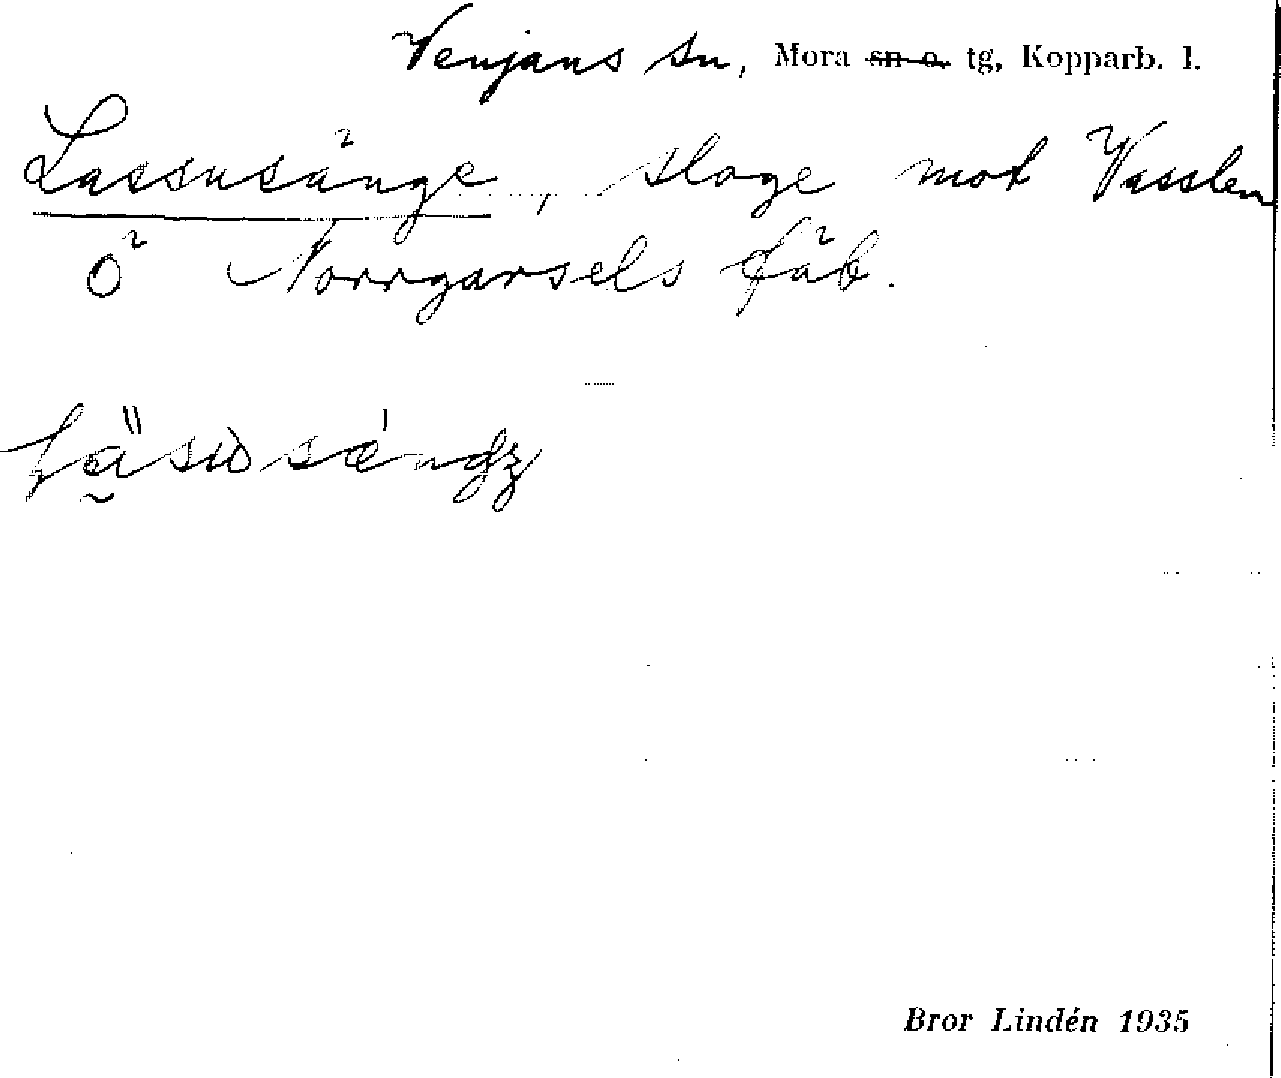 Venjans sn, Mora sn o. tg, Kopparb. l.
Lassusänge, sloge mot Vasslen
ö Norrgarsels fäb.
Bror Lindén 1935